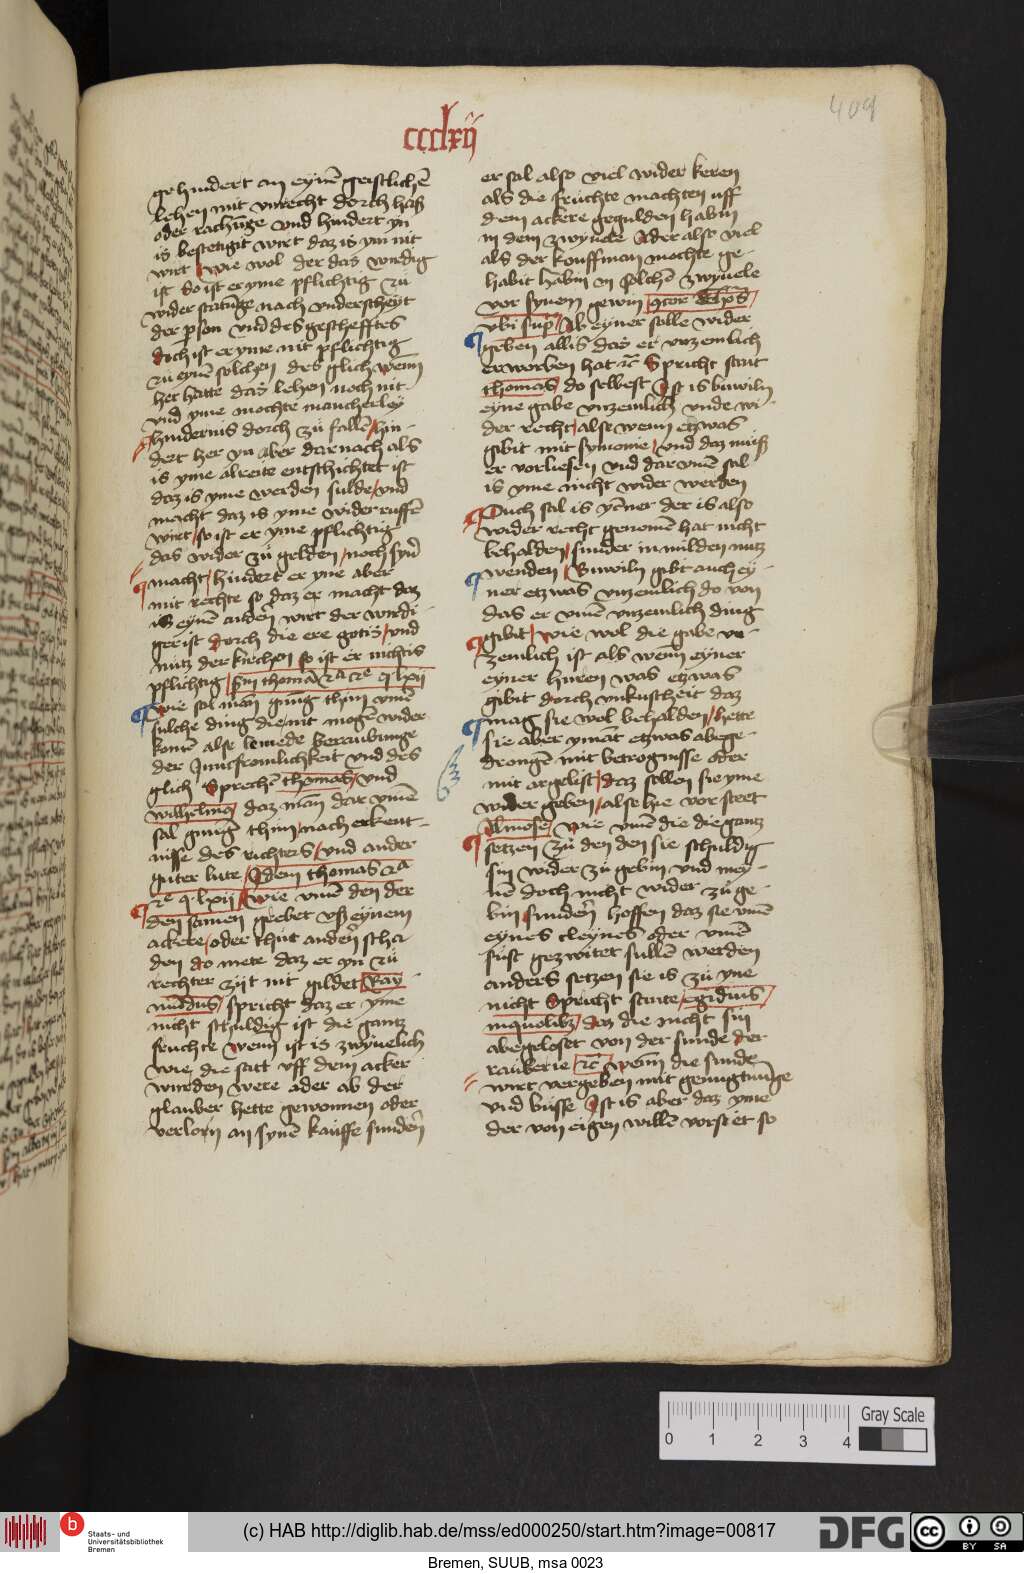 ccclxij
409
gehindert an eynē geistlichē
lehen mit vnrecht dorch haß
oder rachūge vnd hindert yn
is bestetigit wirt daz is ym nit
wirt / wie wol der das wirdig
ist So ist er yme pflichtig zu
wider statūge nach vnderscheyt
der pson vnd des geschefftes
doch ist er yme nit pflichtig
zu eynē solchen des glich wenn
her hatte das lehen noch nit
vnd yme mochte mancherley
hindernis dorch zu fallē / hin-
dert her yn aber dar nach als
is yme alreite entschichtet ist
daz is yme werden sulde / vnd
macht daz is yme wider ruffē
wirt / so ist er yme pflichtig
das wider zu gelden / noch synē
macht / hindert er yne aber
mit rechte so daz er macht daz
is eynē andern wirt der wirdi-
ger ist dorch die ere gotis / vnd
nutz der kirchen so ist er nichtis
pflichtig / sm thomā 2a 2e q lxii
wie sal man gnug thun vmē
sulche ding die nit mogē wider
komē alse lemede beraubunge
der Juncfromlichkeit vnd des
glich Sprechē thomas / vnd
wilhelmq daz man dar vmē
sal gnug thun / nach erkent-
nisse des richters / vnd ander
guter lute / Idem thomas 2a
2e q lxii / wie vmē den der
den samen grebet vß eynem
ackere / oder thut andern scha
den do mete daz er yn zu
rechter zijt nit gildet Ray
mūdus / spricht daz er yme
nicht schuldig ist die gantz
fruchte wenn ist is zwyuelich
wie die satt vff dem acker
wurden were ader ab der
glauber hette gewonnen oder
verlorn an synē kauffe sundern
er sal also viel wider keren
als die fruchte machten uff
dem ackere gegulden habin
in dem zwyuele Ader also viel
als der kouffman mochte ge-
habit habin in solchē zwyuele
vor synen gewin
vbi sup / Ab eyner solle wider
geben allis das er vnzemlich
erworben hat rc Spricht sant
thomas / do selbest Ist is biwiln
eyne gabe vnzemlich vnde wi-
der recht / alse wenn etzwas
gibit mit symonie / vnd daz muß
er vorliesen vnd dar vmē sal
is yme nicht wider werden
Ouch sal is yēner der is also
wider recht genomē hat nicht
behalden / sunder in milden nutz
wenden / Biwiln gibt auch ey-
ner etzwas vnzemlich do von
das er vmē vnzemlich ding
gibit / wie wol die gabe vn-
zemlich ist als wenn eyner
eyner huren was etzwas
gibit dorch vnkuscheit daz
mag sie wol behalden / hette
sie aber ymāt etzwas abege-
drongē mit betrognisse oder
mit argelist / daz sollen sie yme
wider geben / alse hie vor steet
Almose / wie vmē die die gantz
setzen zu den den sie schuldig
sin wider zu gebin vnd mey-
nē doch nicht wider zu ge-
bin sundern hoffen daz sie vmē
eynes cleynes oder vmē
sust gezwitet sullē werden
anders setzen sie is zu yne
nicht Spricht sancte / egidius
inquolibz / daz die nicht sin
abegeloset von der sunde der
rauberie rc wenn die sunde
wirt vergeben mit genugtunge
vnd busse Ist is aber daz yme
der von eigen willē vorstet so
0 1 2 3 4
Gray Scale
Staats- und
Universitätsbibliothek
Bremen
(c) HAB http://diglib.hab.de/mss/ed000250/start.htm?image=00817
DFG
cc BY SA
Bremen, SUUB, msa 0023